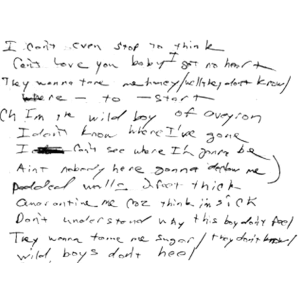 I can't even stop to think
Can't love you baby I got no heart
They wanna tame me honey/well they don't know/
where - to - start
Oh I'm the wild boy of aveyron
I don't know where I've gone
I can't see where I'm gonna be
Aint nobody here gonna me
padded walls 2 feet thick
Quarantine me coz think im sick
Don't understand why this boy don't feel
They wanna tame me sugar/they don't know/
wild boys don't heel